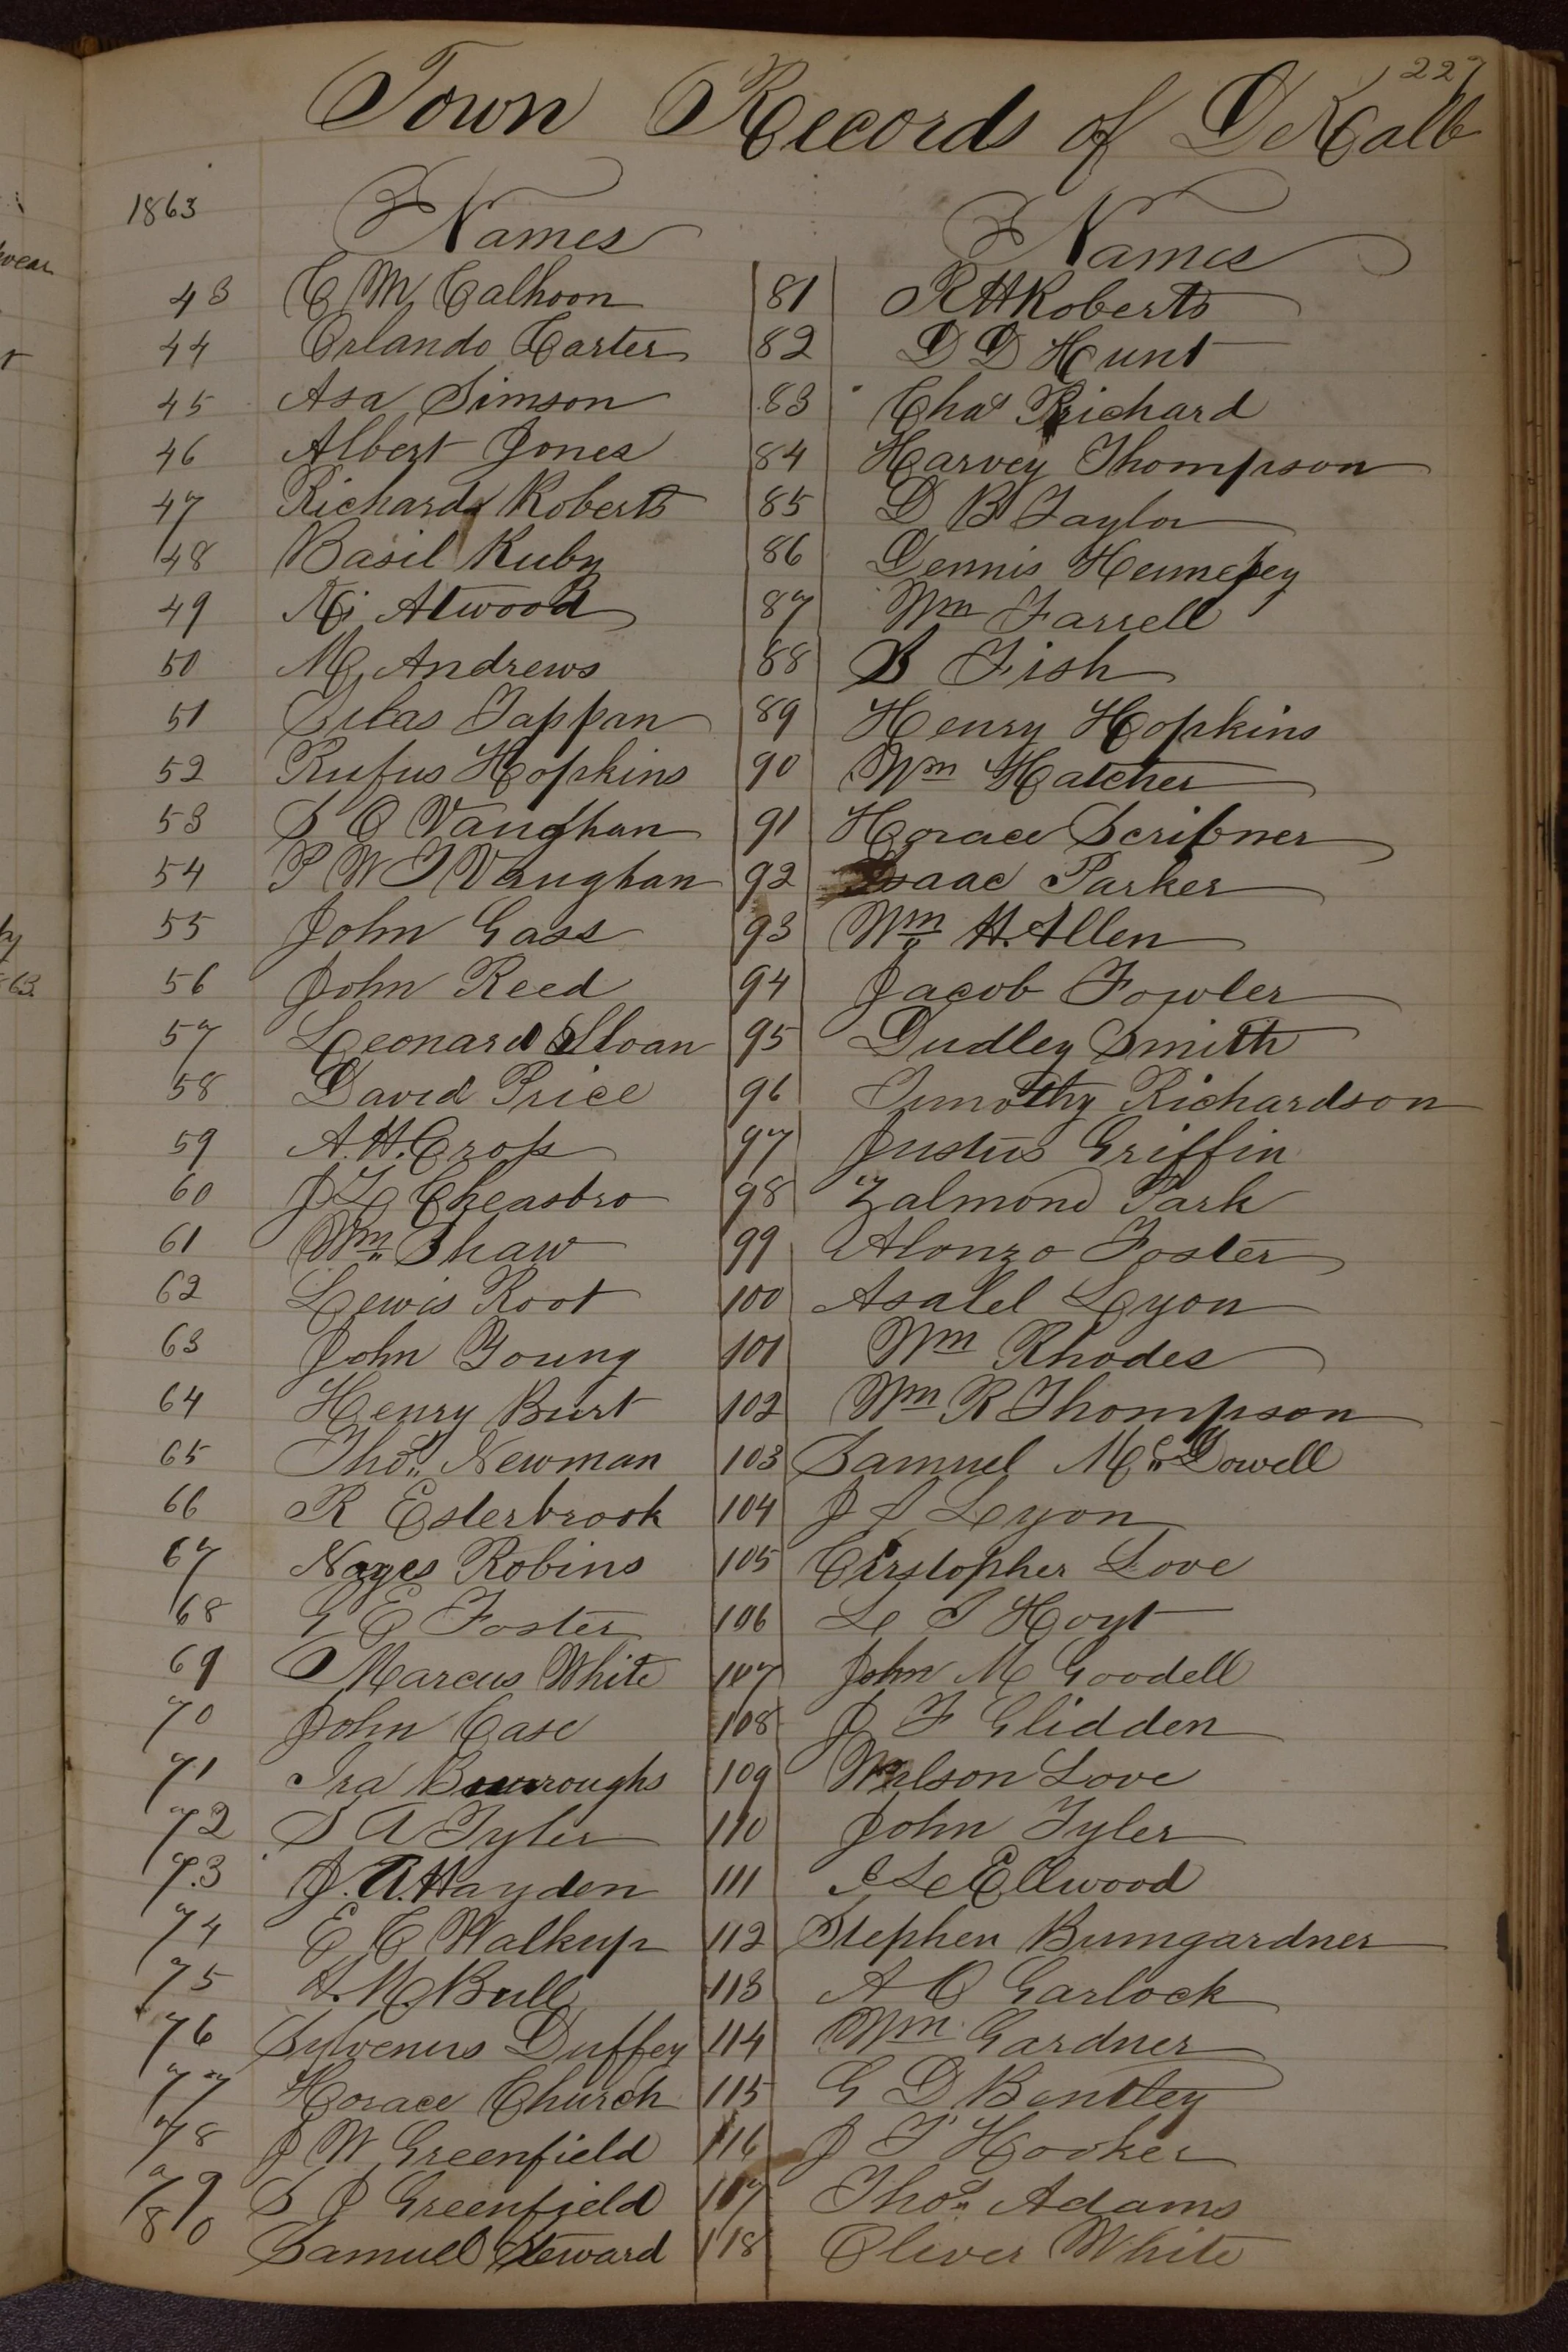 227
Town Records of DeKalb
1863
Names
43 C M Calhoon
44 Orlando Carter
45 Asa Simson
46 Albert Jones
47 Richard Roberts
48 Basil Ruby
49 Atwood
50 M Andrews
51 Silas Tappan
52 Rufus Hopkins
53 S O Vaughan
54 P W T Vaughan
55 John Gass
56 John Reed
57 Leonard Sloan
58 David Price
59 A. H. Crop
60 J L Cheasbro
61 Wm Shaw
62 Lewis Root
63 John Young
64 Henry Burt
65 Thos Newman
66 R Esterbrook
67 Noyes Robins
68 G E Foster
69 Marcus White
70 John Case
71 Ira Burroughs
72 S A Tyler
73 J. A. Hayden
74 E C Walkup
75 H. M. Bull
76 Sylvenus Duffey
77 Horace Church
78 J W Greenfield
79 S J Greenfield
80 Samuel Steward
Names
81 R H Roberts
82 D D Hunt
83 Chas Richard
84 Harvey Thompson
85 D B Taylor
86 Dennis Hennepey
87 Wm Farrell
88 B Fish
89 Henry Hopkins
90 Wm Hatcher
91 Horace Scribner
92 Isaac Parker
93 Wm H. Allen
94 Jacob Fowler
95 Dudley Smith
96 Timothy Richardson
97 Justus Griffin
98 Zalmond Park
99 Alonzo Foster
100 Asalel Lyon
101 Wm Rhodes
102 Wm R Thompson
103 Samuel McDowell
104 J S Lyon
105 Cirstopher Love
106 L T Hoyt
107 John M Goodell
108 J F Glidden
109 Wilson Love
110 John Tyler
111 I L Ellwood
112 Stephen Bumgardner
113 A O Garlock
114 Wm Gardner
115 G D Bentley
116 J T Hooker
117 Thos Adams
118 Oliver White